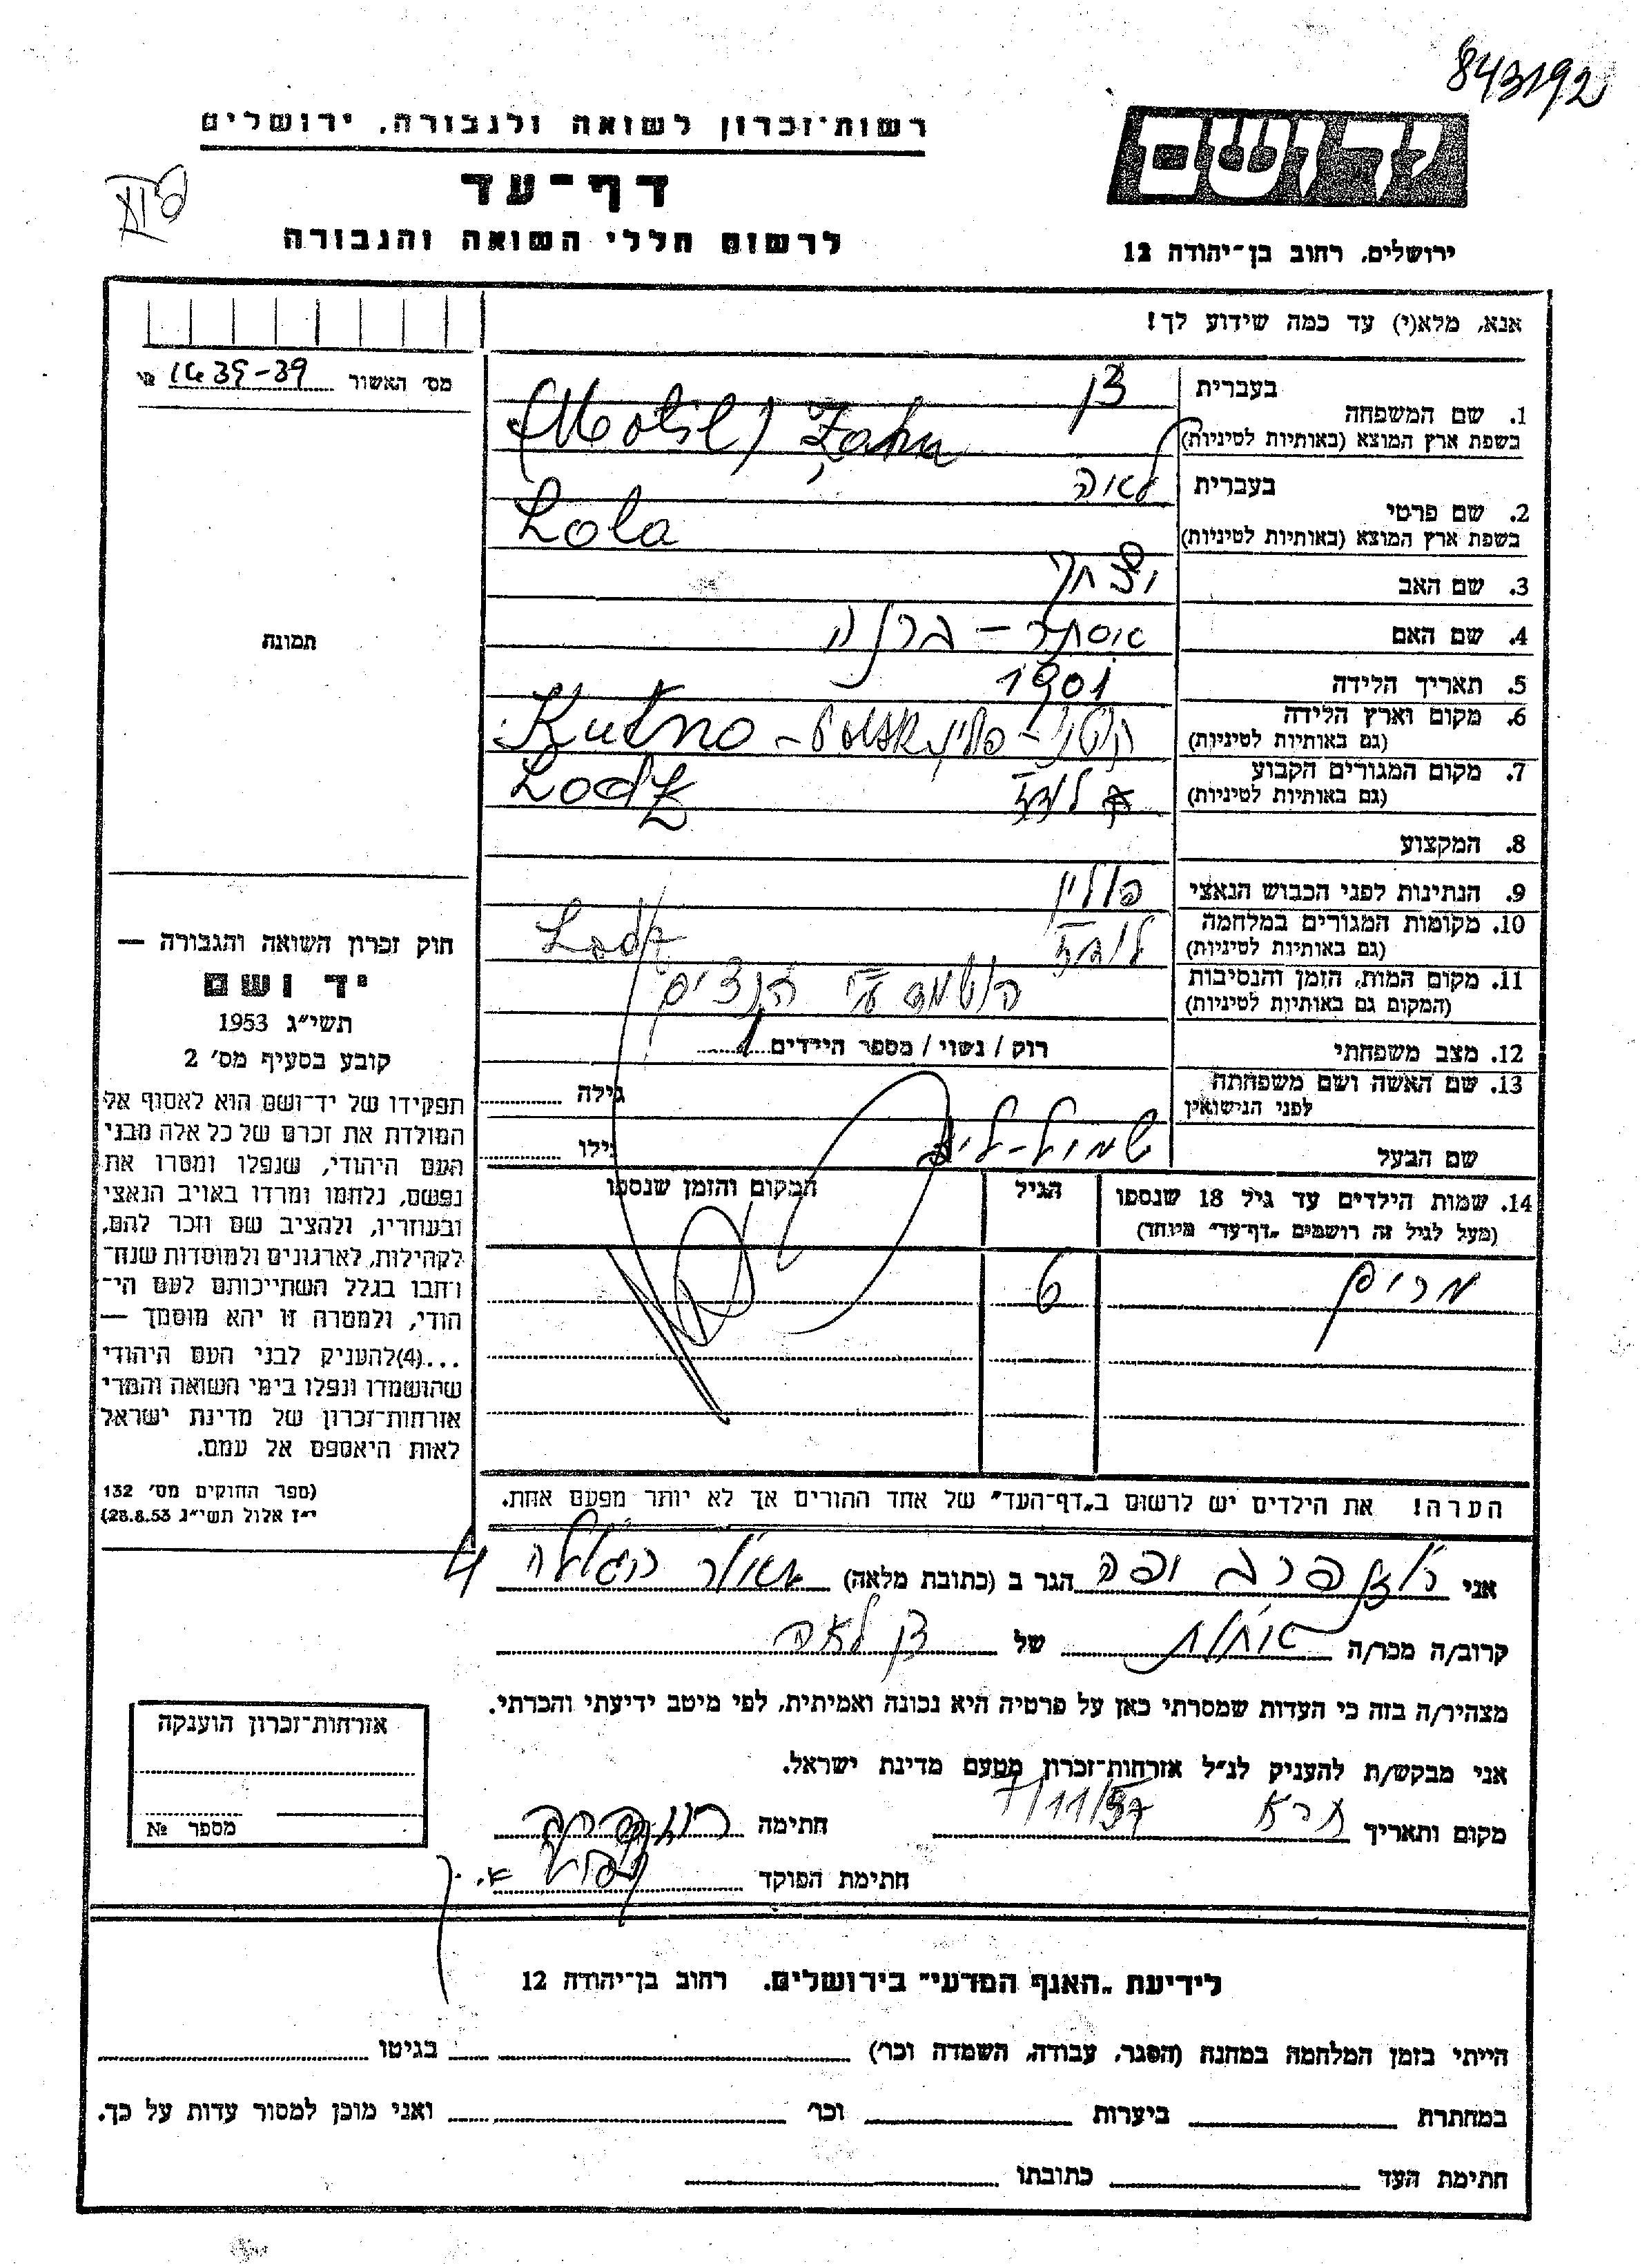 843192
ידושם
ירושלים. רחוב בן־יהודה 12
רשות־זכרון לשואה ולגבורה, ירושלים
דף־עד
לרשום חללי השואה והגבורה
אנא, מלא(י) עד כמה שידוע לך!
מס׳ האשור 39-
1. שם המשפחה
בעברית
בשפת ארץ המוצא (באותיות לטיניות)
2. שם פרטי
בעברית לאה
בשפת ארץ המוצא (באותיות לטיניות) Lola
3. שם האב יצחק
4. שם האם אסתר –
5. תאריך הלידה 1901
6. מקום וארץ הלידה
(גם באותיות לטיניות) Kutno –
7. מקום המגורים הקבוע
(גם באותיות לטיניות) לודז Lodz
8. המקצוע
9. הנתינות לפני הכבוש הנאצי פולין
10. מקומות המגורים במלחמה
(גם באותיות לטיניות) לודז Lodz
11. מקום המות, הזמן והנסיבות
(המקום גם באותיות לטיניות) הושמד ע״י הנצים
12. מצב משפחתי
רוק / נשוי / מספר הילדים 1
13. שם האשה ושם משפחתה
לפני הנישואין
גילה
שם הבעל
גילו
14. שמות הילדים עד גיל 18 שנספו
(מעל לגיל זה רושמים „דף־עד״ מיוחד)
הגיל
המקום והזמן שנספו
מרים 6
הערה! את הילדים יש לרשום ב„דף־העד״ של אחד ההורים אך לא יותר מפעם אחת.
תמונה
חוק זכרון השואה והגבורה —
יד ושם
תשי״ג 1953
קובע בסעיף מס׳ 2
תפקידו של יד־ושם הוא לאסוף אל
המולדת את זכרם של כל אלה מבני
העם היהודי, שנפלו ומסרו את
נפשם, נלחמו ומרדו באויב הנאצי
ובעוזריו, ולהציב שם וזכר להם,
לקהילות, לארגונים ולמוסדות שנח־
רחבו בגלל השתייכותם לעם הי־
הודי, ולמטרה זו יהא מוסמך —
...(4)להעניק לבני העם היהודי
שהושמדו ונפלו בימי השואה והמרי
אזרחות־זכרון של מדינת ישראל
לאות היאספם אל עמם.
(ספר החוקים מס׳ 132
י״ז אלול תשי״ג 28.8.53)
אני הגר ב (כתובת מלאה) 4
קרוב/ה מכר/ה של לאה
מצהיר/ה בזה כי העדות שמסרתי כאן על פרטיה היא נכונה ואמיתית, לפי מיטב ידיעתי והכרתי.
אני מבקש/ת להעניק לנ״ל אזרחות־זכרון מטעם מדינת ישראל.
מקום ותאריך 7/11/57 חתימה
חתימת הפוקד
אזרחות־זכרון הוענקה
מספר №
לידיעת „האגף המדעי״ בירושלים. רחוב בן־יהודה 12
הייתי בזמן המלחמה במחנה (הסגר, עבודה, השמדה וכר׳) בגיטו
במחתרת ביערות וכר׳ ואני מוכן למסור עדות על כך.
חתימת העד כתובתו